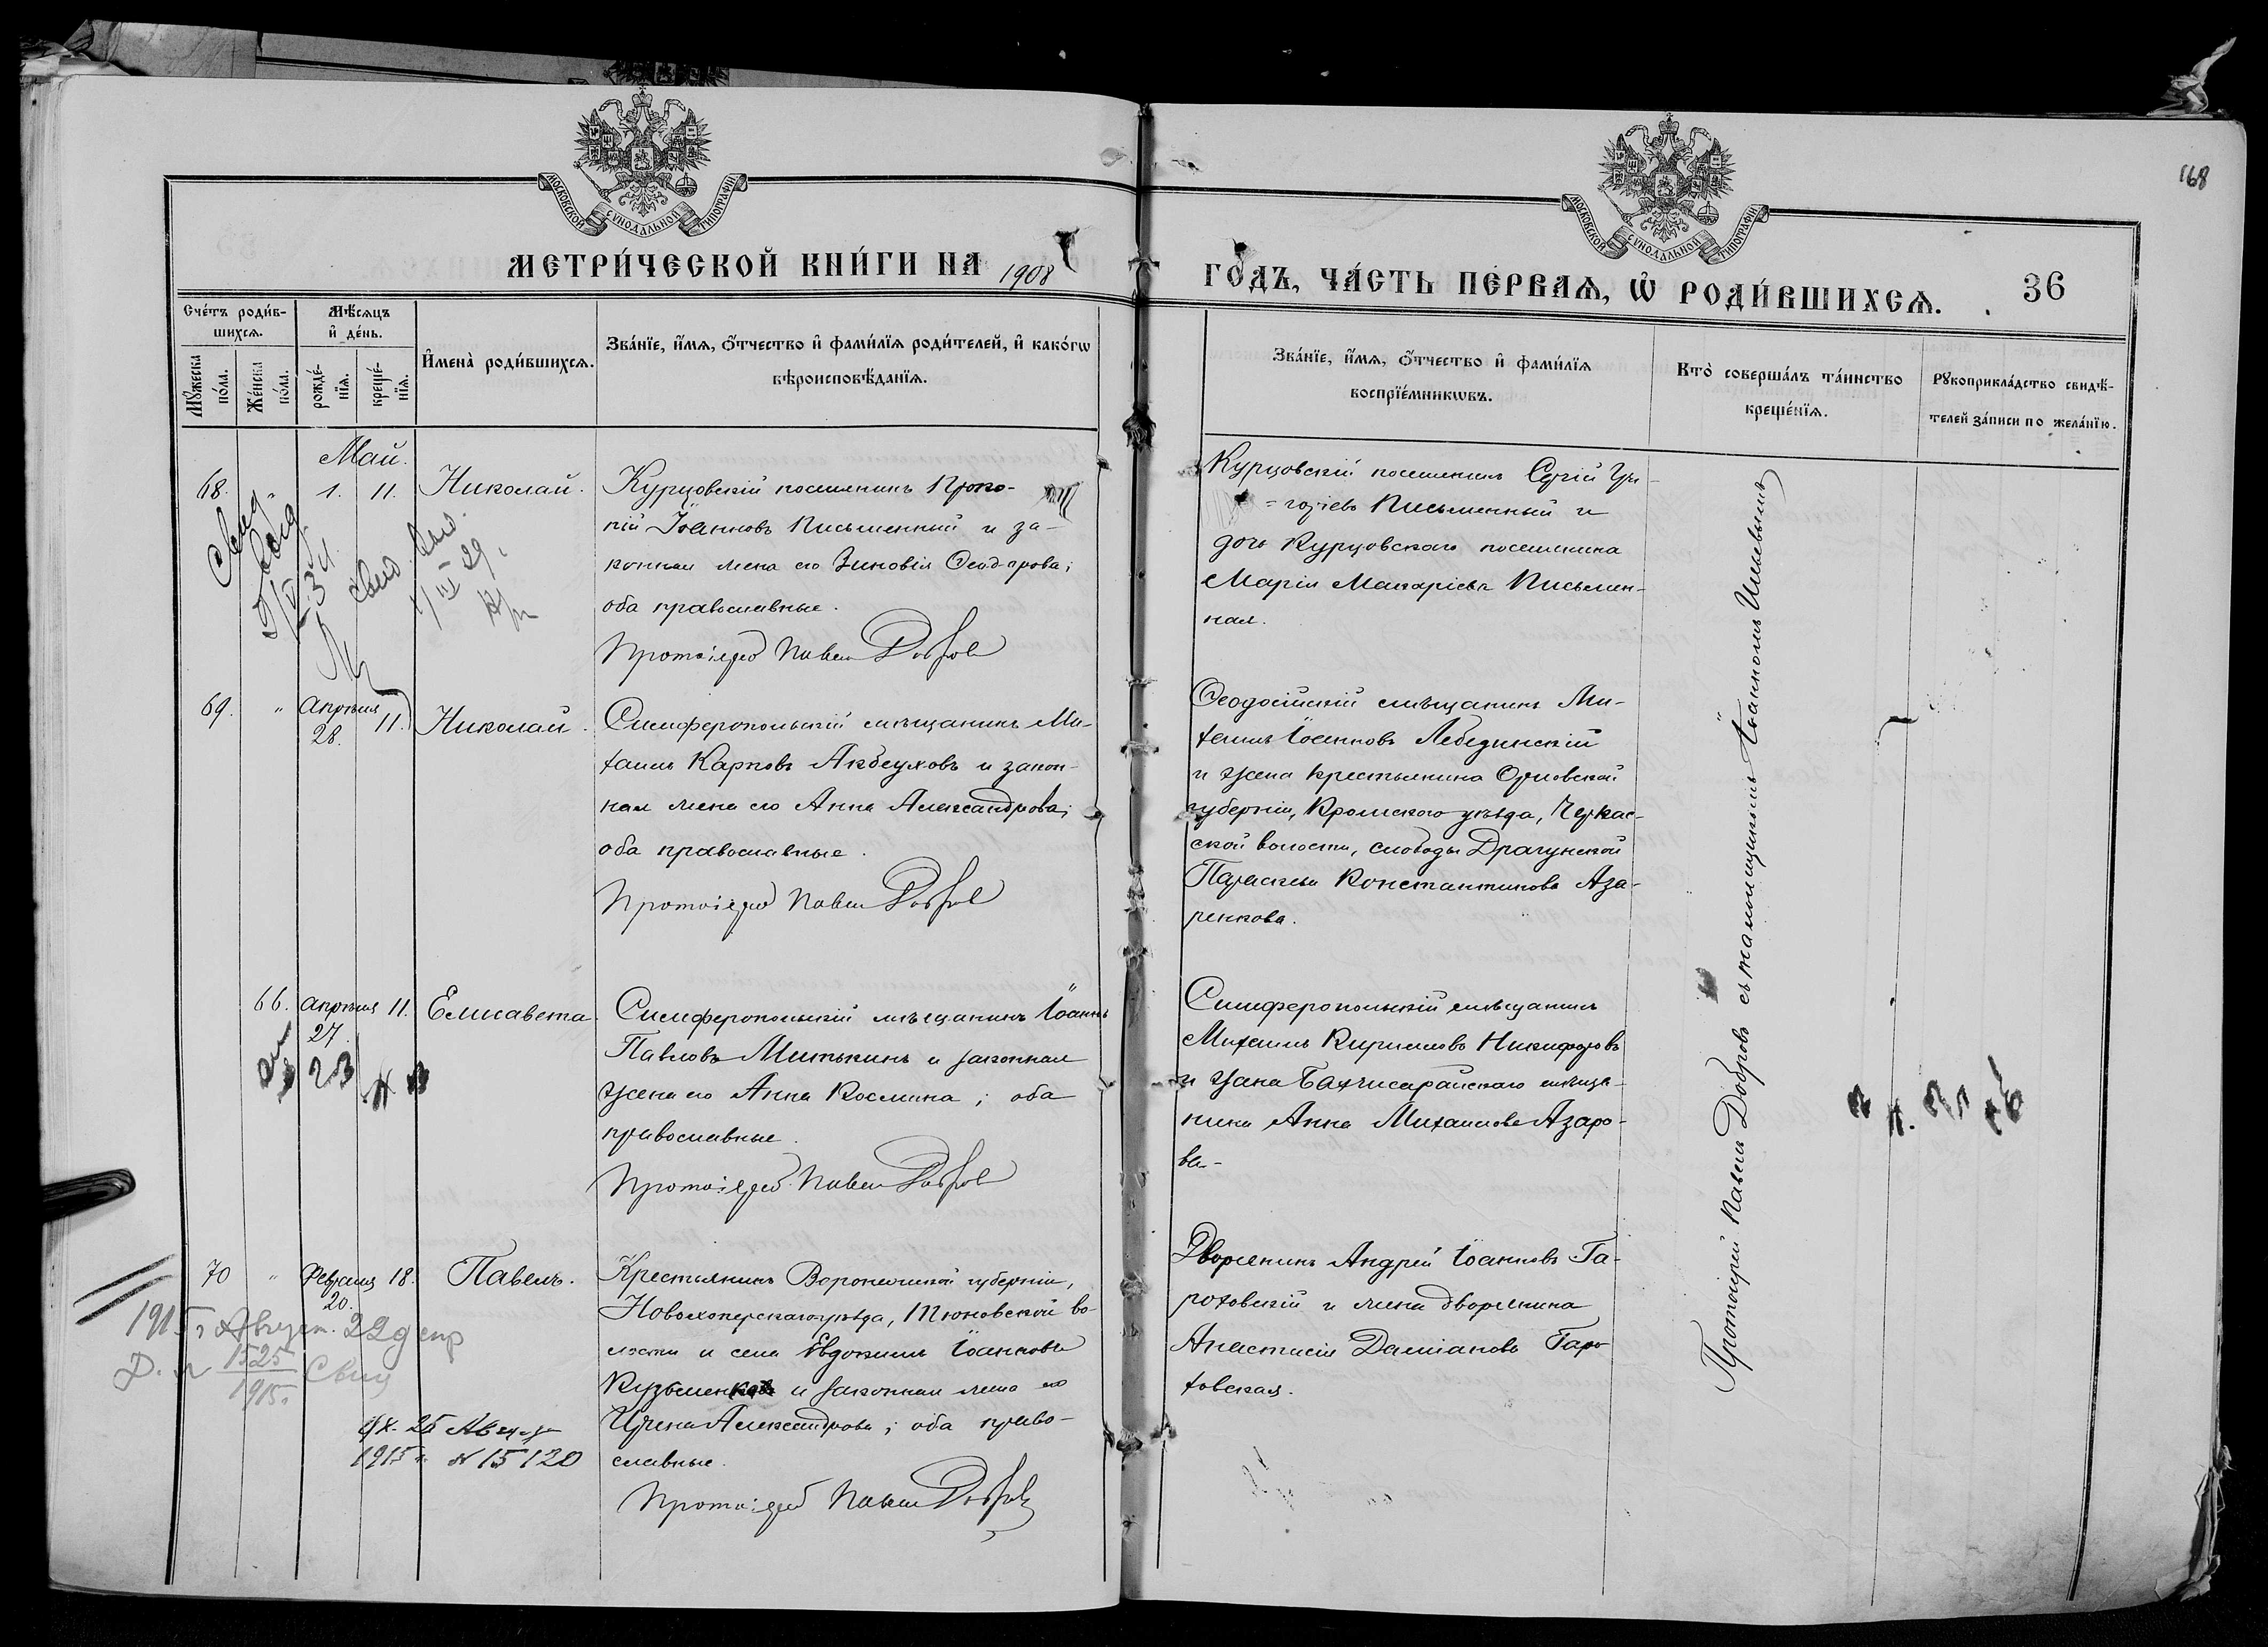 168
МОСКОВСКОЙ СѴНОДАЛЬНОЙ ТИПОГРАФІИ
МОСКОВСКОЙ СѴНОДАЛЬНОЙ ТИПОГРАФІИ
МЕТРИ́ЧЕСКОЙ КНИ́ГИ НА 1908
ГО́ДЪ, ЧА́СТЬ ПЕ́РВАѦ, Ѡ҆ РОДИ́ВШИХСѦ. 36
Сче́тъ роди́в-
шихсѧ.
Мꙋ́жеска по́ла.
Же́нска по́ла.
Мѣ́сѧцъ
и҆ де́нь.
рожде́-
нїѧ.
креще́-
нїѧ.
И҆мена̀ роди́вшихсѧ.
Зва́нїе, и҆́мѧ, ѻ҆́тчество и҆ фами́лїѧ роди́телей, и҆ како́гѡ
вѣроисповѣ́данїѧ.
Зва́нїе, и҆́мѧ, ѻ҆́тчество и҆ фами́лїѧ
воспрїе́мникѡвъ.
Кто̀ соверша́лъ та́инство
креще́нїѧ.
Рꙋкоприкла́дство свидѣ́-
телей за́писи по жела́нїю.
Май.
68. " 1. 11. Николай.
Курцовскій поселянинъ Проко-
пій Іоанновъ Письменный и за-
конная жена его Зиновія Ѳеодорова;
оба православные.
Протоіерей Павелъ Добровъ
Курцовскій поселянинъ Сергій Гри-
=горіевъ Письменный и
дочь Курцовскаго поселянина
Марія Макаріева Письмен-
ная.
69. " Апрѣля 28. 11. Николай.
Симферопольскій мѣщанинъ Ми-
хаилъ Карповъ Акбеуховъ и закон-
ная жена его Анна Александрова;
оба православные.
Протоіерей Павелъ Добровъ
Ѳеодосійскій мѣщанинъ Ми-
хаилъ Іоанновъ Лебединскій
и жена крестьянина Орловской
губерніи, Кромскаго уѣзда, Черкас-
ской волости, слободы Драгунской
Параскева Константинова Аза-
ренкова.
66. Апрѣля 27. 11. Елисавета.
Симферопольскій мѣщанинъ Іоаннъ
Павловъ Митькинъ и законная
жена его Анна Космина; оба
православные.
Протоіерей Павелъ Добровъ
Симферопольскій мѣщанинъ
Михаилъ Кирилловъ Никифоровъ
и жена Бахчисарайскаго мѣща-
нина Анна Михаилова Азаро-
ва.
70 " Февраля 20. 18. Павелъ.
Крестьянинъ Воронежской губерніи,
Новохоперскаго уѣзда, Тюковской во-
лости и села Евдокимъ Іоанновъ
Кузьменковъ и законная жена его
Ирина Александрова; оба право-
славные.
Протоіерей Павелъ Добровъ
Дворянинъ Андрей Іоанновъ Га-
роховскій и жена дворянина
Анастасія Даміанова Гаро-
ховская.
Протоіерей Павелъ Добровъ съ псаломщикомъ Іоанномъ
1915 г. Август. 22 д
1525
1915 г.
Свид
25 Август
1915 г. № 15120